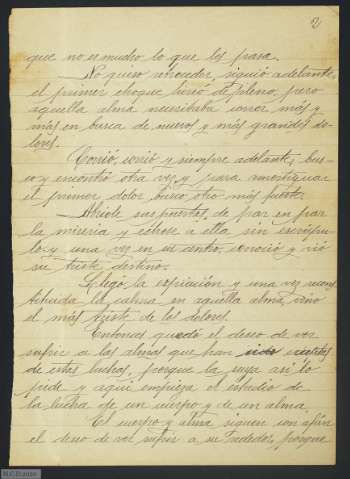 2
que no es mucho lo que les pasa.
No quiso retroceder, siguió adelante,
el primer choque hirió de pleno, pero
aquella alma necesitaba correr más y
más en busca de nuevos y más grandes do-
lores.
Corrió, corrió y siempre adelante, bus-
có y encontró otra vez y para amortiguar
el primer dolor buscó otro más fuerte.
Abriole sus puertas, de par en par
la miseria y echose a ella sin escrúpu-
los y una vez en su centro, conoció y vió
su triste destino.
Llegó la expiación y una vez recons
tituida la calma en aquella alma, vino
el más triste de los dolores.
Entonces quedó el deseo de ver
sufrir a las almas que han sido
de estas luchas, porque la suya así lo
pide y aquí empieza el estudio de
la lucha de un cuerpo y de un alma.
El cuerpo y alma siguen con afán
el deseo de ver sufrir a su rededor, porque